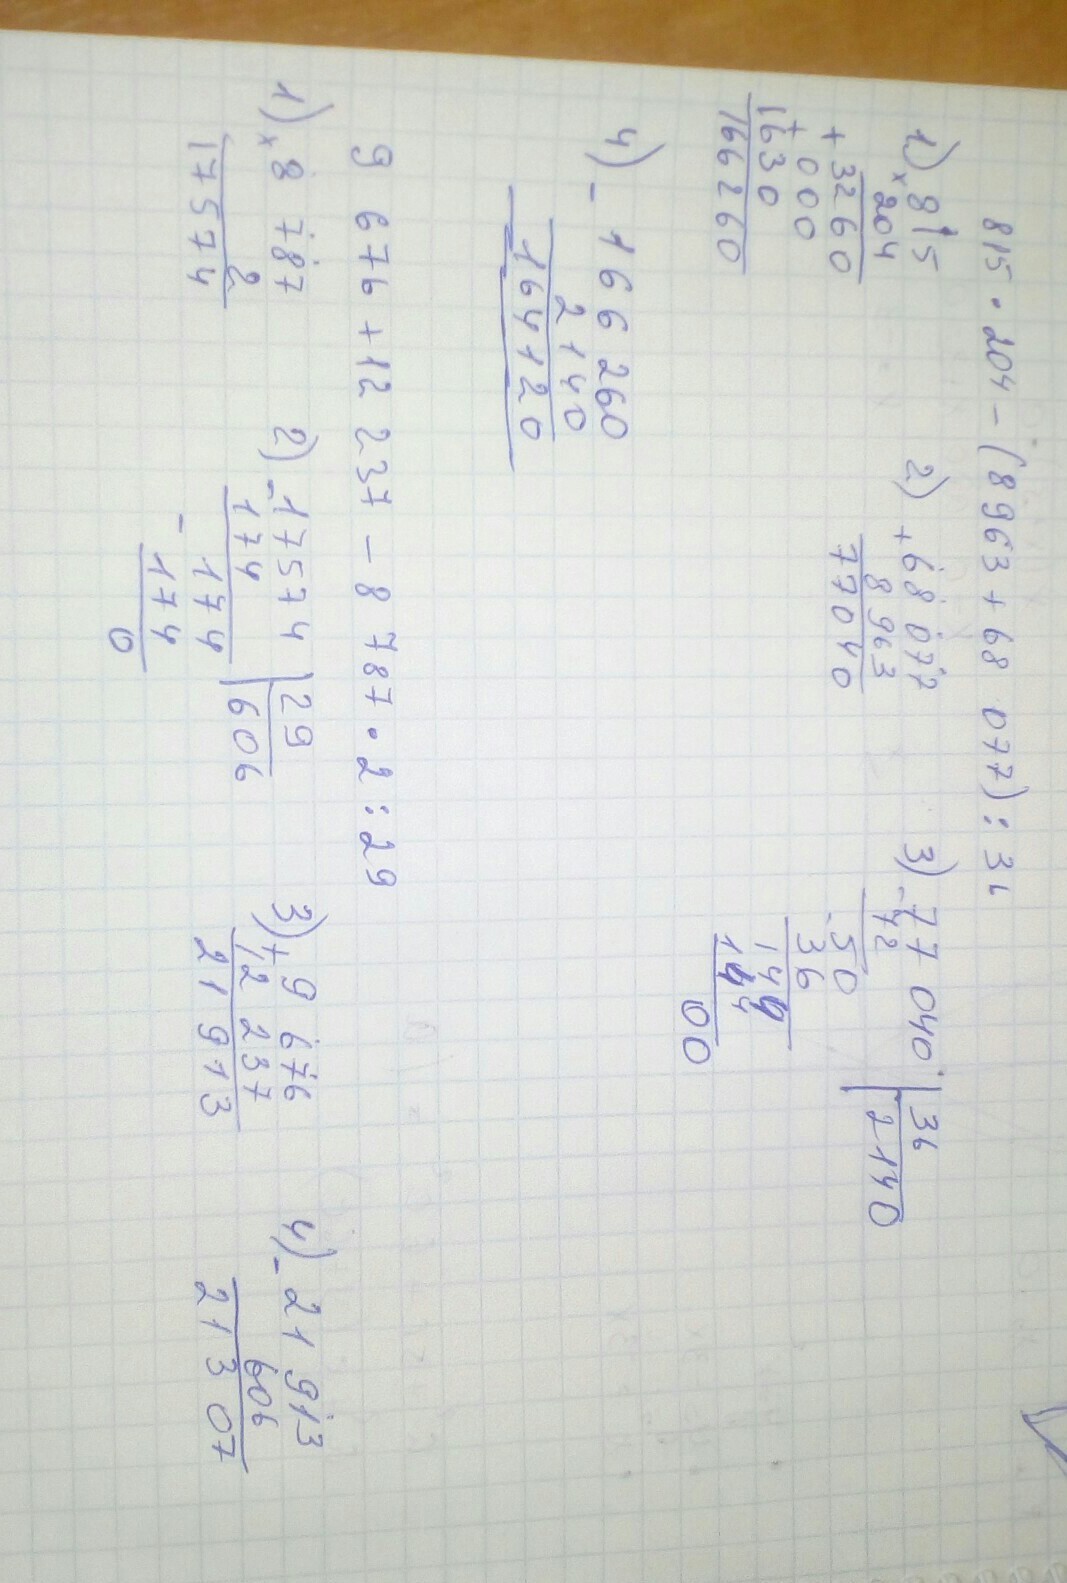 815 · 204 - (8 963 + 68 077) : 36
1) × 815
204
+ 3260
+ 000
1630
166260
2) + 68 077
8 963
77040
3) - 77 040 | 36
72 | 2140
- 50
36
144
144
00
4) - 166 260
2 140
164120
9 676 + 12 237 - 8 787 · 2 : 29
1) × 8 787
2
17574
2) - 17574 | 29
174 | 606
- 174
174
0
3) + 9 676
12 237
21 913
4) - 21 913
606
21 307